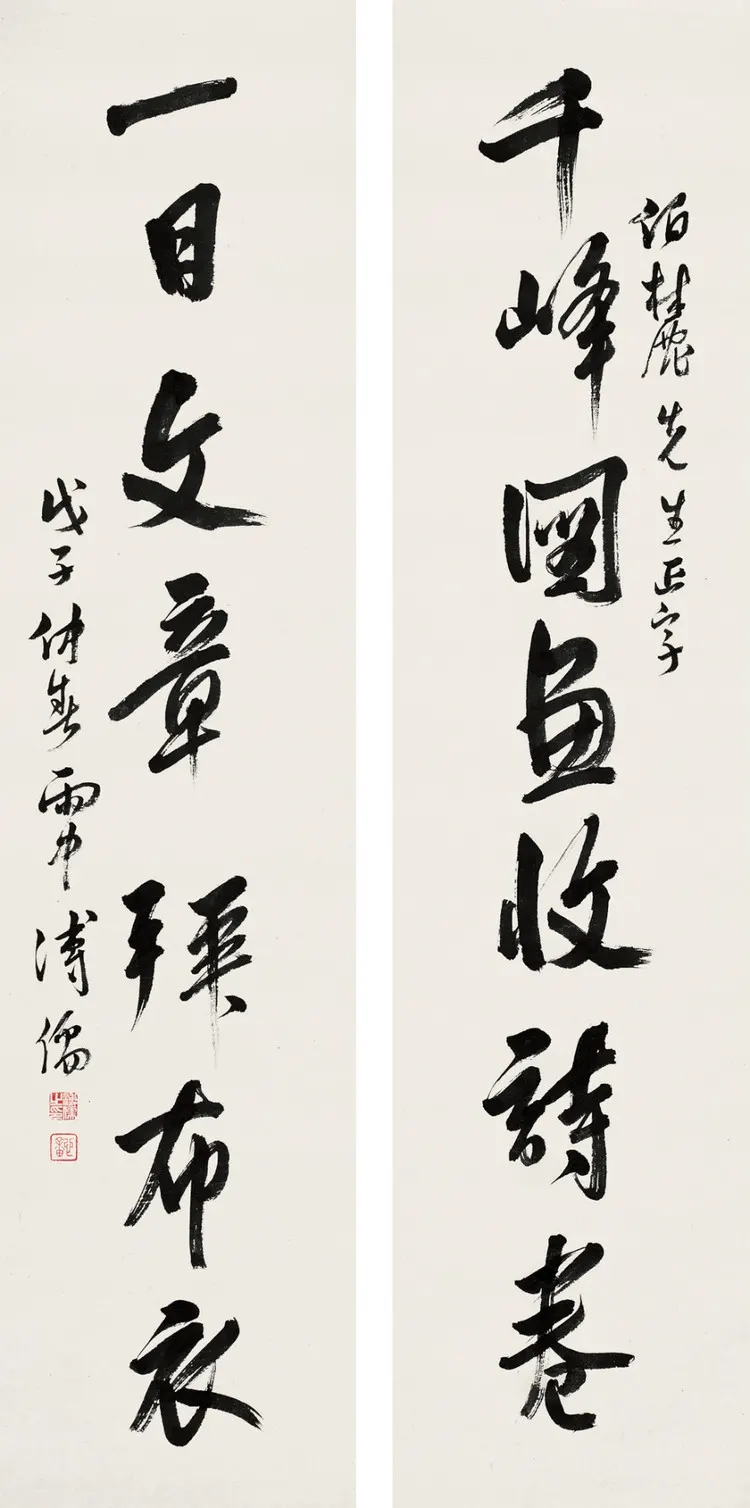 千峰圖畫收詩卷
伯麓先生正字
一目文章拜布衣
戊子仲春雨中溥儒